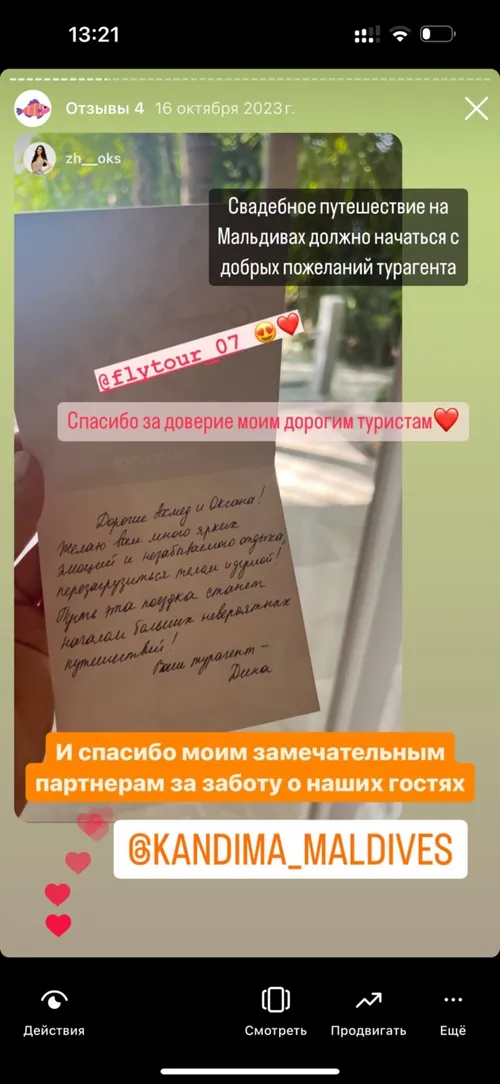 13:21
Отзывы 4 16 октября 2023 г.
zh__oks
Свадебное путешествие на
Мальдивах должно начаться с
добрых пожеланий турагента
@flytour_07 😍❤️
Спасибо за доверие моим дорогим туристам❤️
Дорогие Ахмед и Оксана!
Желаю вам много ярких
эмоций и незабываемого отдыха,
перезагрузиться телом и душой!
Пусть эта поездка станет
началом больших невероятных
путешествий!
Ваш турагент –
Дина
И спасибо моим замечательным
партнерам за заботу о наших гостях
@KANDIMA_MALDIVES
Действия
Смотреть
Продвигать
Ещё